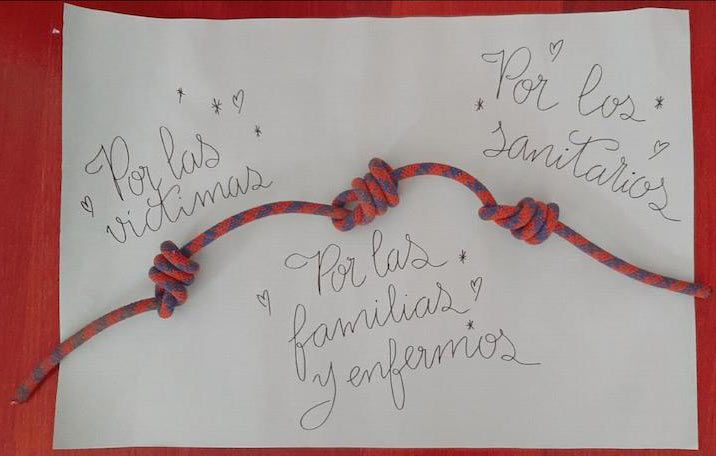 Por las
víctimas
Por las
familias
y enfermos
Por los
sanitarios